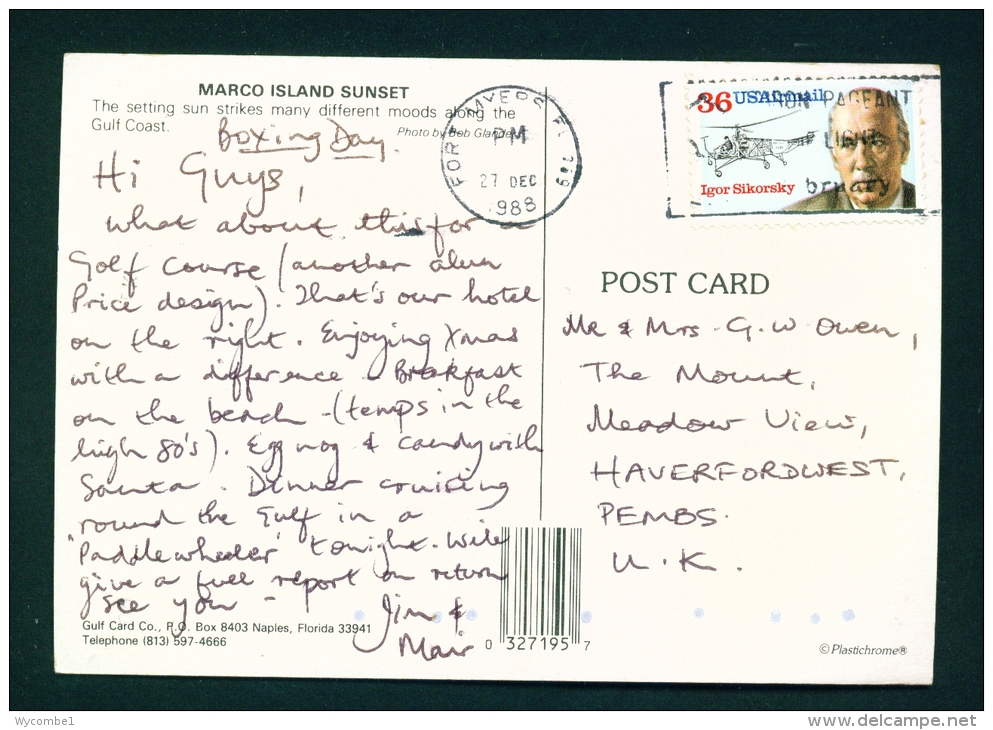 MARCO ISLAND SUNSET
The setting sun strikes many different moods along the
Gulf Coast.
Photo by Bob Glander
Boxing Day.
Hi Guys,
What about this for a
Golf Course (another alun
Price design). That's our hotel
on the right. Enjoying Xmas
with a difference - Breakfast
on the beach - (temps in the
high 80's). Egg nog & candy with
Santa. Dinner cruising
round the Gulf in a
'Paddlewheeler' tonight. Will
give a full report on return
see you -
Jim &
Mair
Gulf Card Co., P.O. Box 8403 Naples, Florida 33941
Telephone (813) 597-4666
0 327195 7
FORT MYERS FL
PM
27 DEC
1988
36 USAirmail
Igor Sikorsky
PAGEANT
LIGHT
POST CARD
Mr & Mrs. G. W Owen,
The Mount,
Meadow View,
HAVERFORDWEST,
PEMBS.
U.K.
© Plastichrome®
Wycombe1
www.delcampe.net